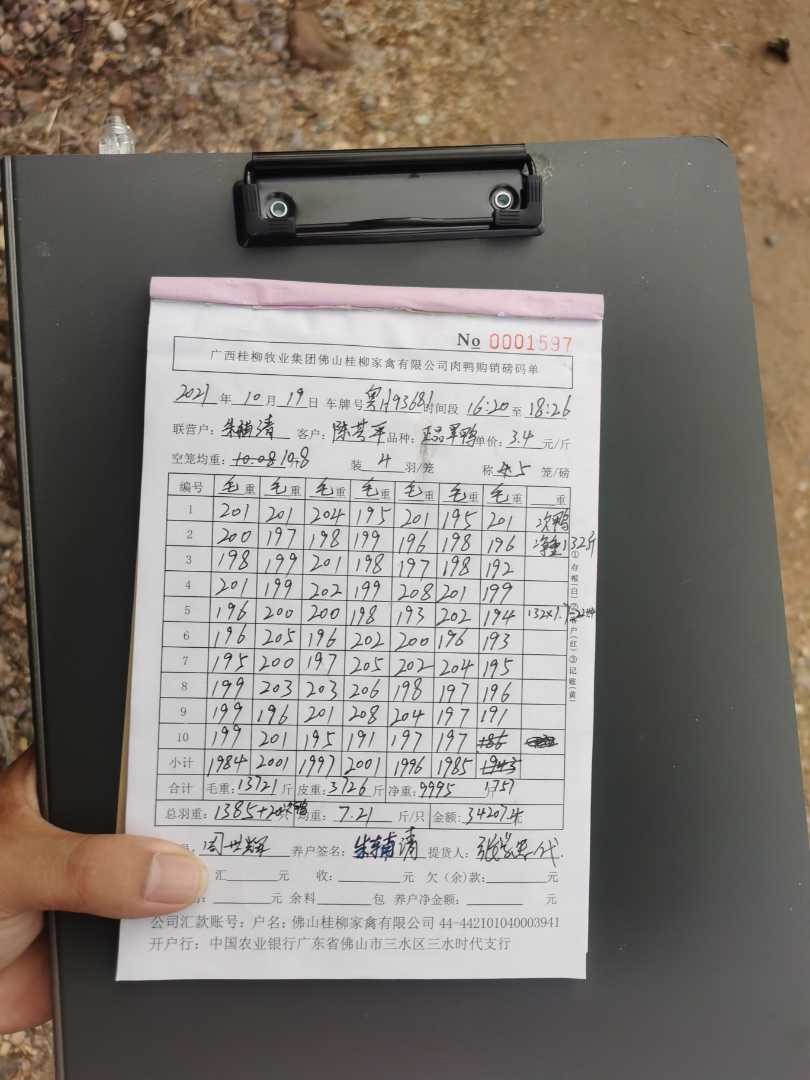 No 0001597
广西桂柳牧业集团佛山桂柳家禽有限公司肉鸭购销磅码单
2021年 10月 19日 车牌号 粤 93681 时间段 16:20 至 18:26
联营户: 朱辅清 客户: 陈其平 品种: 鸭 单价: 3.4 元/斤
空笼均重: 装 4 羽/笼 称 5 笼/磅
编号 毛重 毛重 毛重 毛重 毛重 毛重 毛重 重
1 201 201 204 195 201 195 201 次鸭
2 200 197 198 199 196 198 196 净重132斤
3 198 199 201 198 197 198 192
4 201 199 202 199 208 201 199
5 196 200 200 198 193 202 194
6 196 205 196 202 200 196 193
7 195 200 197 205 202 204 195
8 199 203 203 206 198 197 196
9 199 196 201 208 204 197 191
10 199 201 195 191 197 197 186
小计 1984 2001 1997 2001 1996 1985 1943 1757
合计 毛重: 13721 斤 皮重: 3726 斤 净重: 9995 斤
总羽重: 1385+20只次鸭 均重: 7.21 斤/只 金额: 34207.4
员: 周世辉 养户签名: 朱辅清 提货人:
汇 元 收: 元 欠(余)款: 元
元 余料 包 养户净金额: 元
公司汇款账号: 户名: 佛山桂柳家禽有限公司 44-442101040003941
开户行: 中国农业银行广东省佛山市三水区三水时代支行
①存根(白)②客户(红)③记账(黄)